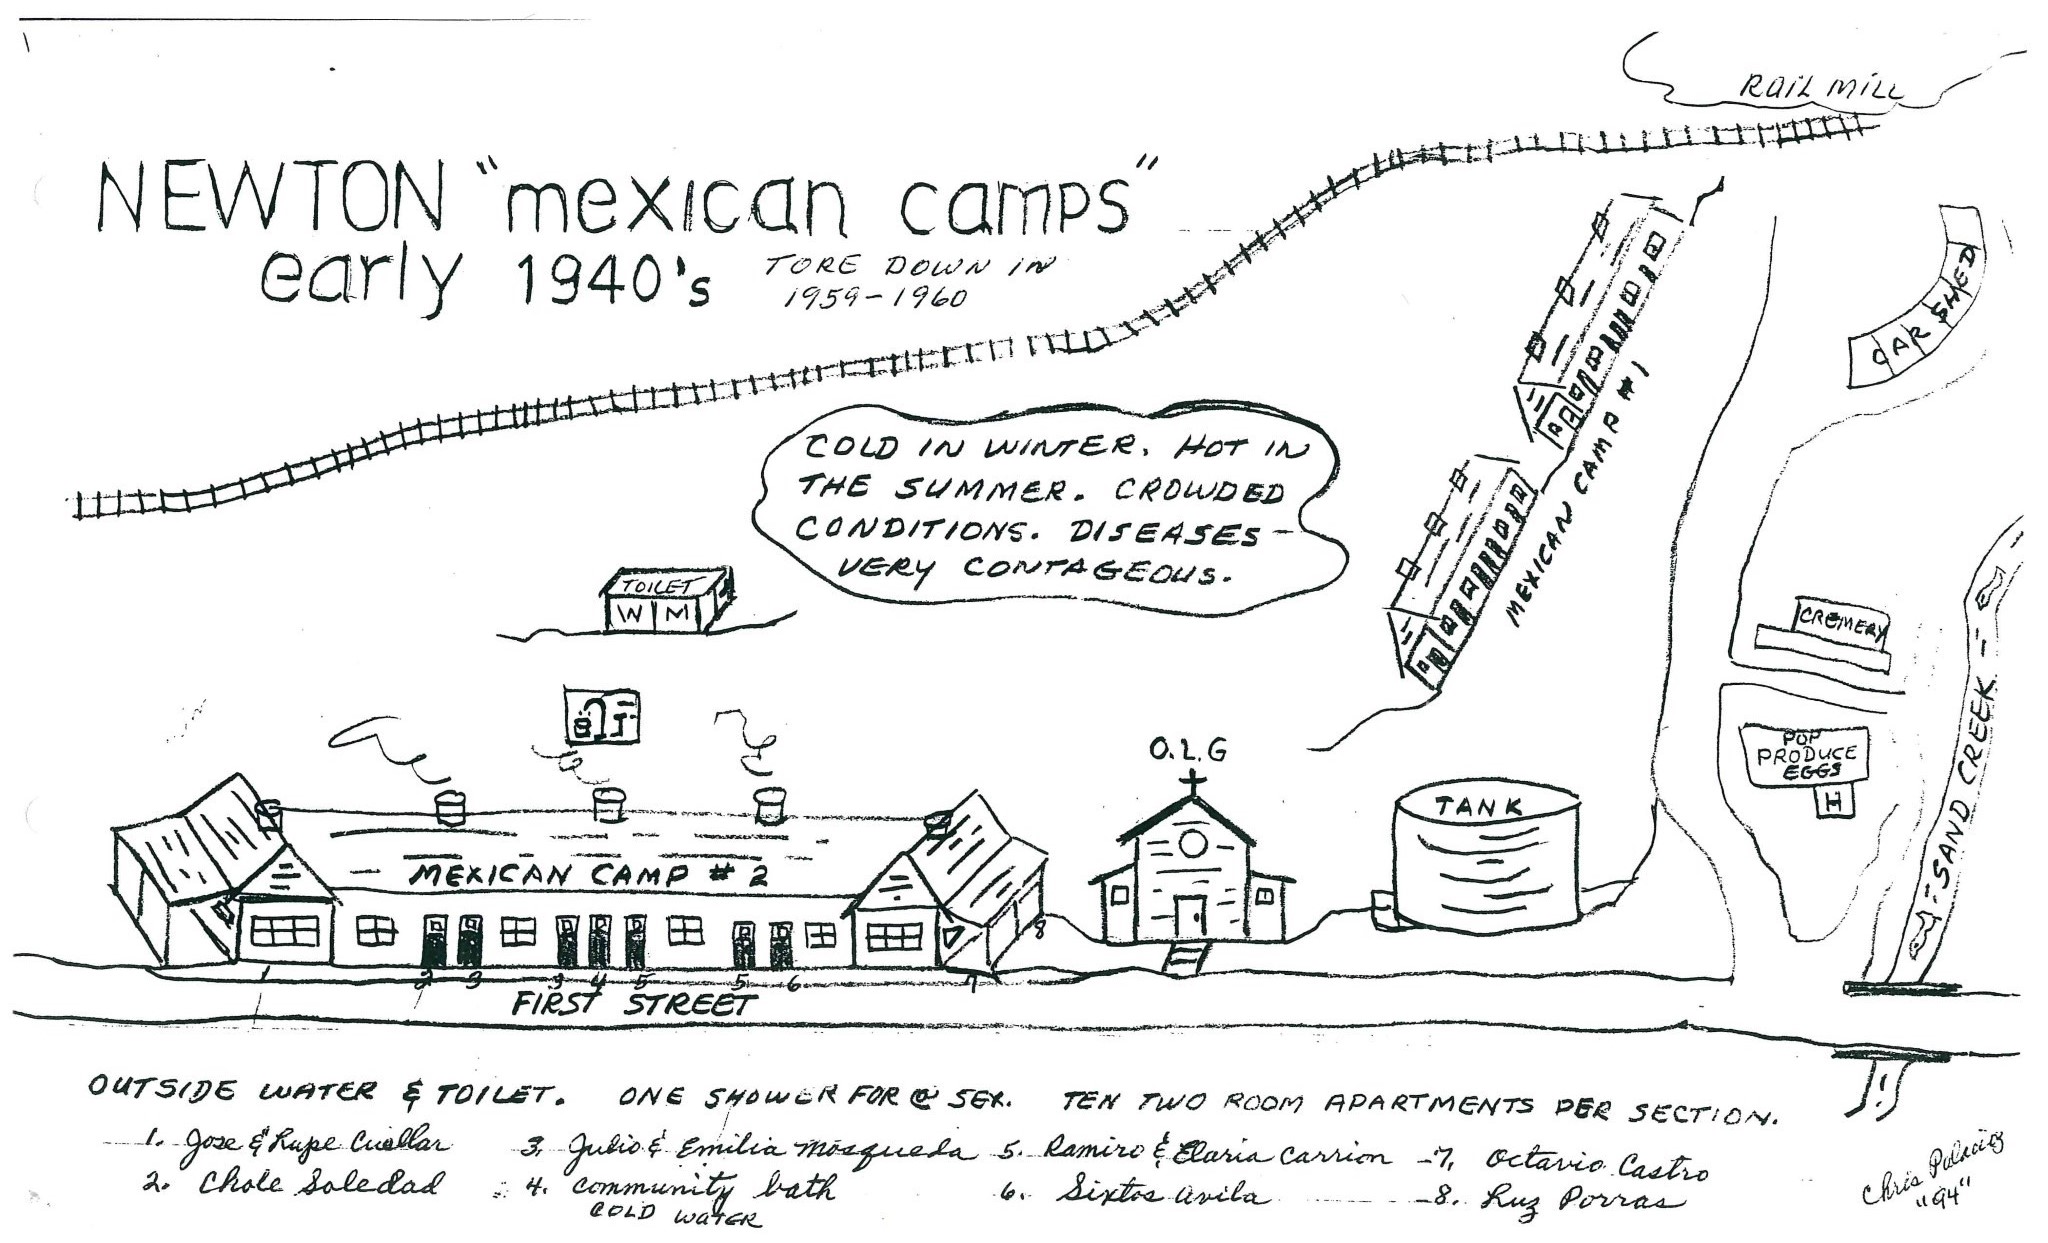 RAIL MILL
NEWTON "mexican camps"
early 1940's
TORE DOWN IN
1959-1960
CAR SHED
MEXICAN CAMP #1
COLD IN WINTER. HOT IN
THE SUMMER. CROWDED
CONDITIONS. DISEASES -
VERY CONTAGEOUS.
TOILET
W M
CREMERY
POP
PRODUCE
EGGS
SAND CREEK
O.L.G
TANK
MEXICAN CAMP #2
8
1 2 3 3 4 5 5 6 7
FIRST STREET
OUTSIDE WATER & TOILET. ONE SHOWER FOR @ SEX. TEN TWO ROOM APARTMENTS PER SECTION.
1. Jose & Lupe Cuellar 3. Julio & Emilia Mosqueda 5. Ramiro & Elaria Carrion 7. Octavio Castro
2. Chole Soledad 4. community bath 6. Sixtos Avila 8. Luz Porras
COLD WATER
Chris Palacioz
"94"